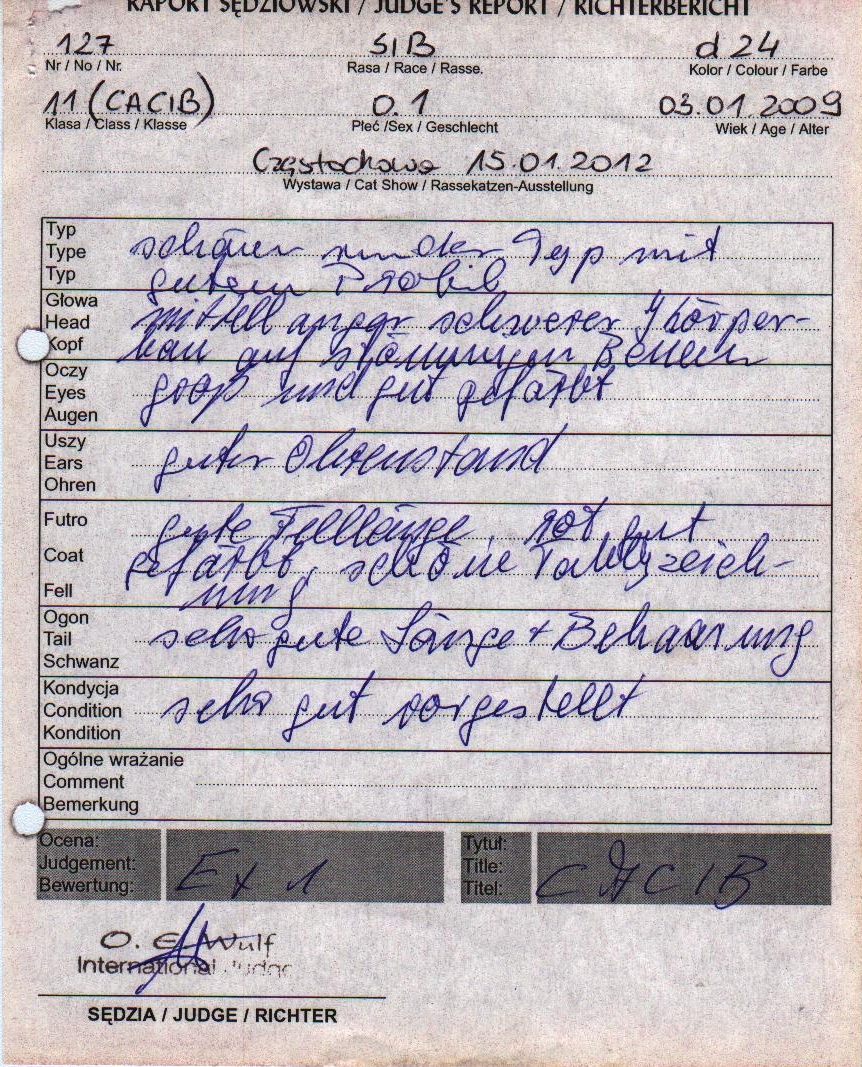 RAPORT SĘDZIOWSKI / JUDGE'S REPORT / RICHTERBERICHT
127 SIB d 24
Nr / No / Nr. Rasa / Race / Rasse. Kolor / Colour / Farbe
11 (CACIB) 0.1 03.01.2009
Klasa / Class / Klasse Płeć /Sex / Geschlecht Wiek / Age / Alter
Częstochowa 15.01.2012
Wystawa / Cat Show / Rassekatzen-Ausstellung
Typ
Type schöner runder Typ mit
Typ gutem Profil
Głowa
Head mittellanger schwerer Körper-
Kopf bau auf stämmigen Beinen
Oczy
Eyes groß und gut gefärbt
Augen
Uszy
Ears guter Ohrenstand
Ohren
Futro gute Felllänge, rot gut
Coat gefärbt, schöne Tabbyzeich-
Fell nung
Ogon
Tail sehr gute Länge + Behaarung
Schwanz
Kondycja
Condition sehr gut vorgestellt
Kondition
Ogólne wrażanie
Comment
Bemerkung
Ocena: Tytuł:
Judgement: Ex 1 Title: CACIB
Bewertung: Titel:
O. E. Wulf
International Judge
SĘDZIA / JUDGE / RICHTER